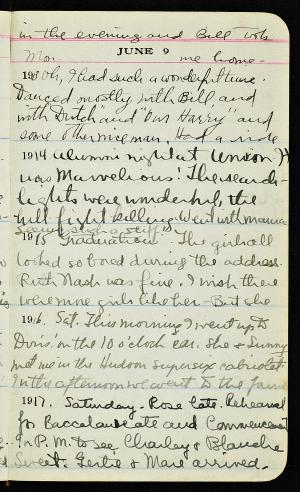 in the evening and Bill took
Mon. me home.
JUNE 9
19 Oh, I had such a wonderful time.
Danced mostly with Bill and
with Dutch and "Our Harry" and
some other nice man. Had a ride
1914 Alumni night at Union. It
was Marvelous! The search-
lights were wonderful, the
bull fight killing. Went with mama
Seems such a stiff
1915 Graduation. The girls all
looked so bored during the address.
Ruth Nash was fine. I wish there
were more girls like her - But she
1916. Sat. This morning I went up to
Doris' on the 10 o'clock car. She & Sunny
met me in the Hudson supersix cabriolet.
In the afternoon we went to the game
1917. Saturday. Rose late. Rehearsal
for Baccalaureate and Commencement
In P.M. to see Charley & Blanche
Sweet. Gertie & Marc arrived.